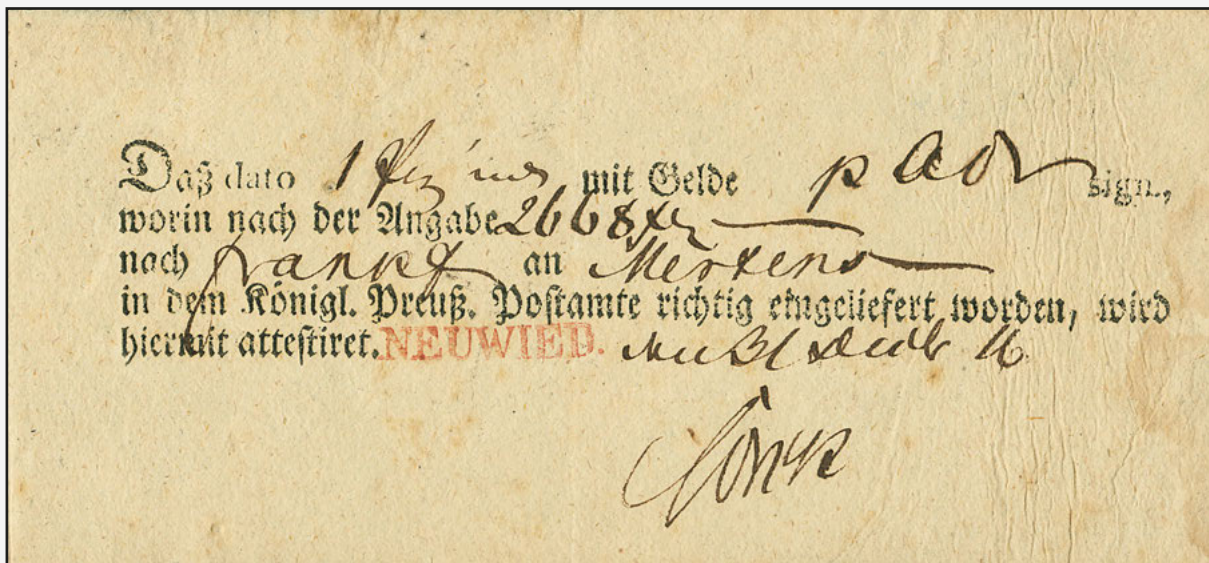 Daß dato 1 mit Gelde p Ador sign.,
worin nach der Angabe 266 8 xr
nach frankf an Mertens
in dem Königl. Preuß. Postamte richtig eingeliefert worden, wird
hiermit attestiret. NEUWIED. 31 Decbr 16